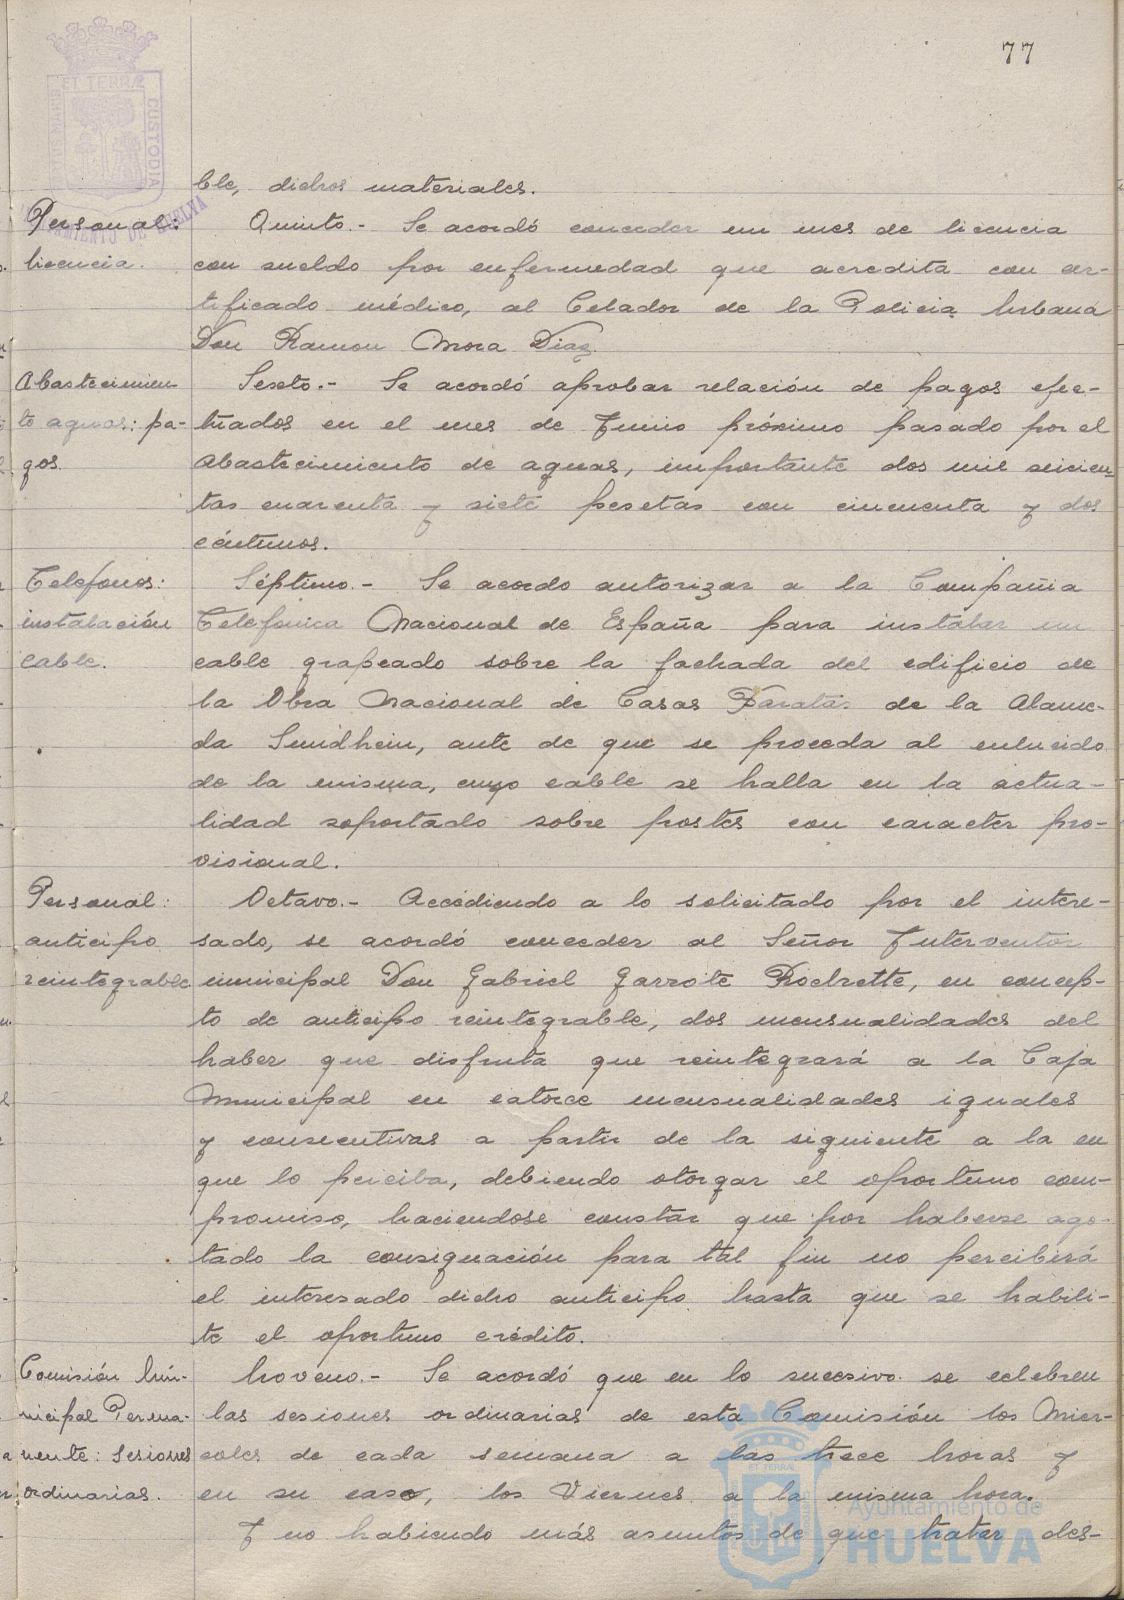 77
ble, dichos materiales.
Personal: Quinto.- Se acordó conceder un mes de licencia
licencia. con sueldo por enfermedad que acredita con cer-
tificado médico, al Celador de la Policia Urbana
Don Ramon Mora Diaz.
Abastecimien- Sexto.- Se acordó aprobar relación de pagos efec-
to aguas: pa- tuados en el mes de Junio próximo pasado por el
gos. Abastecimiento de aguas, importante dos mil seicien-
tas cuarenta y siete pesetas con cincuenta y dos
céntimos.
Telefonos: Séptimo.- Se acordo autorizar a la Compañia
instalación Telefonica Nacional de España para instalar un
cable. cable grapeado sobre la fachada del edificio de
la Obra Nacional de Casas Baratas de la Alame-
da Sundhein, ante de que se proceda al enlucido
de la misma, cuyo cable se halla en la actua-
lidad soportado sobre postes con caracter pro-
visional.
Personal: Octavo.- Accediendo a lo solicitado por el intere-
anticipo sado, se acordó conceder al Señor Interventor
reintegrable municipal Don Gabriel Garrote Rochette, en concep-
to de anticipo reintegrable, dos mensualidades del
haber que disfruta que reintegrará a la Caja
Municipal en catorce mensualidades iguales
y consecutivas a partir de la siguiente a la en
que lo perciba, debiendo otorgar el oportuno com-
promiso, haciendose constar que por haberse ago-
tado la consignación para tal fin no percibirá
el interesado dicho anticipo hasta que se habili-
te el oportuno crédito.
Comisión Mu- Noveno.- Se acordó que en lo sucesivo se celebren
nicipal Perma- las sesiones ordinarias de esta Comisión los Mier-
nente: Sesiones coles de cada semana a las trece horas y
ordinarias. en su caso, los Viernes a la misma hora.
Y no habiendo más asuntos de que tratar des-
Ayuntamiento de
HUELVA